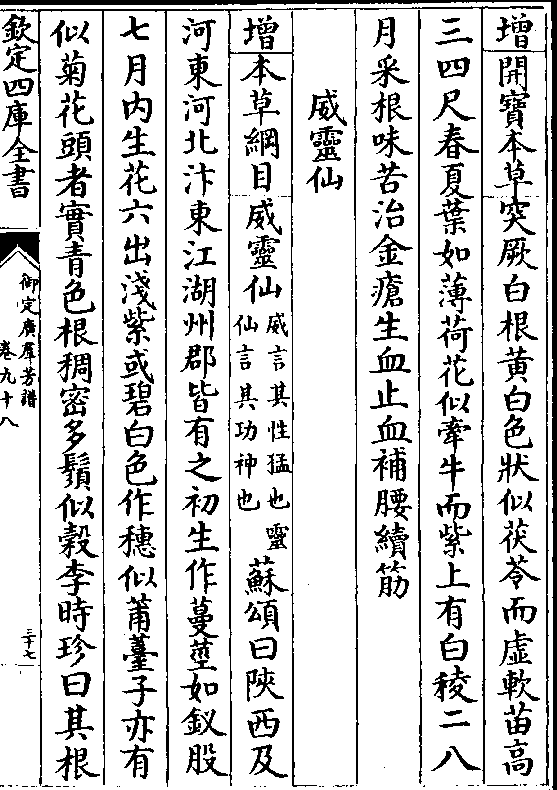 增開寶本草突厥白根黃白色狀似茯苓而虛軟苗高
三四尺春夏葉如薄荷花似牽牛而紫上有白稜二八
月采根味苦治金瘡生血止血補腰續筋
威靈仙
增本草綱目威靈仙威言其性猛也靈仙言其功神也蘇頌曰陝西及
河東河北汴東江湖州郡皆有之初生作蔓莖如釵股
七月內生花六出淺紫或碧白色作穗似莆薹子亦有
似菊花頭者實青色根稠密多鬚似穀李時珍曰其根
欽定四庫全書
御定廣羣芳譜
卷九十八
三十七